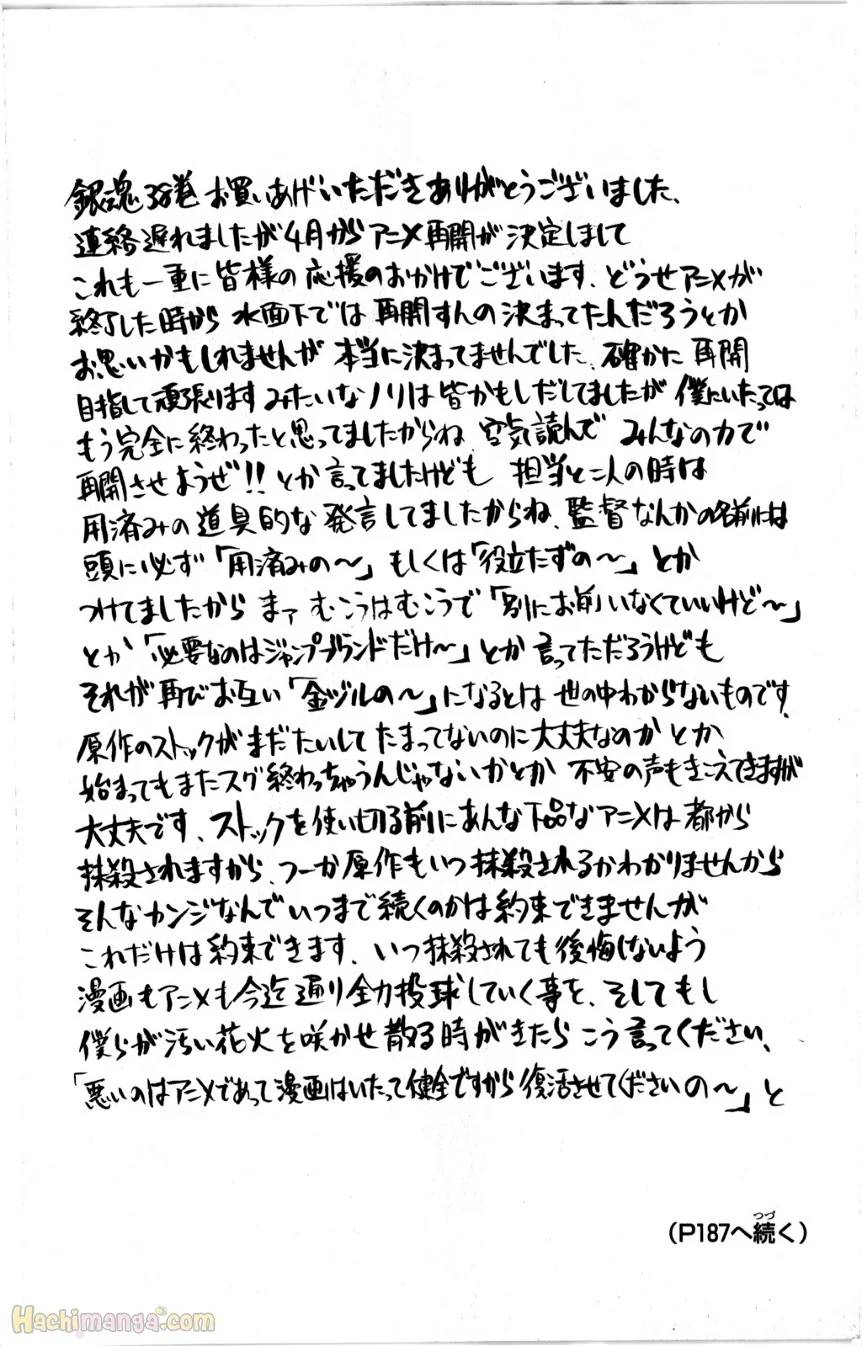 銀魂38巻お買いあげいただきありがとうございました、
連絡遅れましたが4月からアニメ再開が決定しまして
これも一重に皆様の応援のおかげでございます、どうせアニメが
終了した時から水面下では再開すんの決まってたんだろうとか
お思いかもしれませんが本当に決まってませんでした、確かに再開
目指して頑張ります みたいなノリは皆かもしだしてましたが僕にいたっては
もう完全に終わったと思ってましたからね、空気読んで みんなの力で
再開させようぜ!!とか言ってましたけども 担当と二人の時は
用済みの道具的な発言してましたからね、監督なんかの名前には
頭に必ず「用済みの〜」もしくは「役立たずの〜」とか
つけてましたから まァ むこうはむこうで「別にお前いなくていいけど〜」
とか「必要なのはジャンプブランドだけ〜」とか言ってただろうけども
それが再びお互い「金ヅルの〜」になるとは世の中わからないものです、
原作のストックがまだたいしてたまってないのに大丈夫なのかとか
始まってもまたスグ終わっちゃうんじゃないかとか 不安の声もきこえてきますが
大丈夫です、ストックを使い切る前にあんな下品なアニメは都から
抹殺されますから、つーか原作もいつ抹殺されるかわかりませんから
そんなカンジなんでいつまで続くのかは約束できませんが
これだけは約束できます、いつ抹殺されても後悔しないよう
漫画もアニメも今迄通り全力投球していく事を、そしてもし
僕らが汚い花火を咲かせ散る時がきたらこう言ってください、
「悪いのはアニメであって漫画はいたって健全ですから復活させてくださいの〜」と
(P187へ続く)
つづ
Hachimanga.com